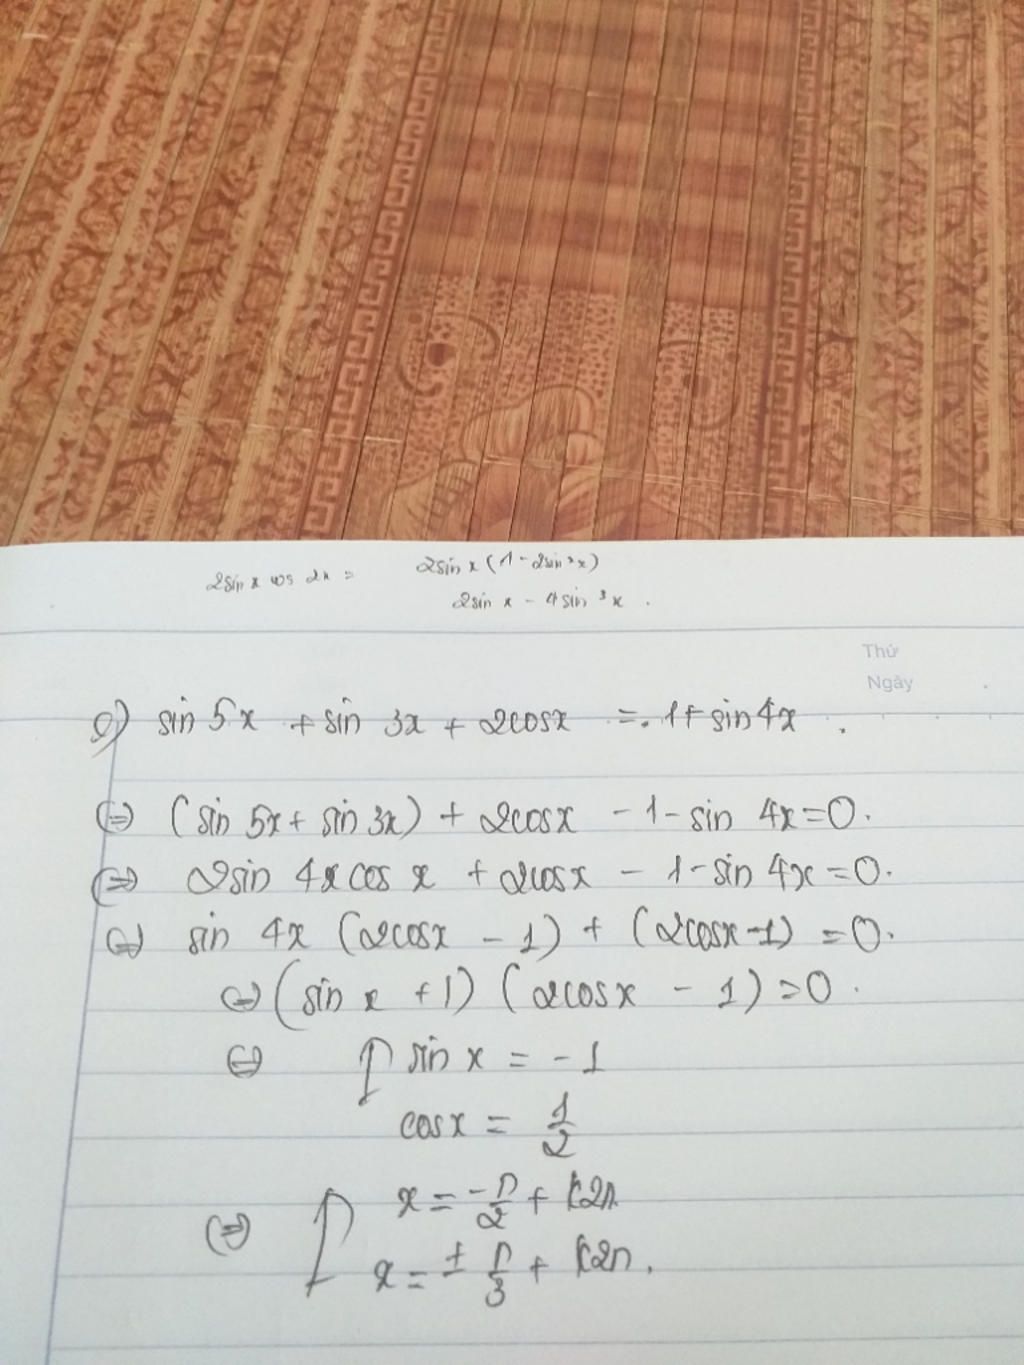 2sin x cos 2x =
2sin x (1 - 2sin²x)
2sin x - 4sin³x.
Thứ
Ngày
e) sin 5x + sin 3x + 2cosx = 1 + sin 4x.
(=) (sin 5x + sin 3x) + 2cosx - 1 - sin 4x = 0.
(=) 2sin 4x cos x + 2cosx - 1 - sin 4x = 0.
(=) sin 4x (2cosx - 1) + (2cosx - 1) = 0.
(=) (sin x + 1) (2cosx - 1) = 0.
(=) [ sin x = -1
cos x = 1/2
(=) [ x = -π/2 + k2π
x = ± π/3 + k2π.